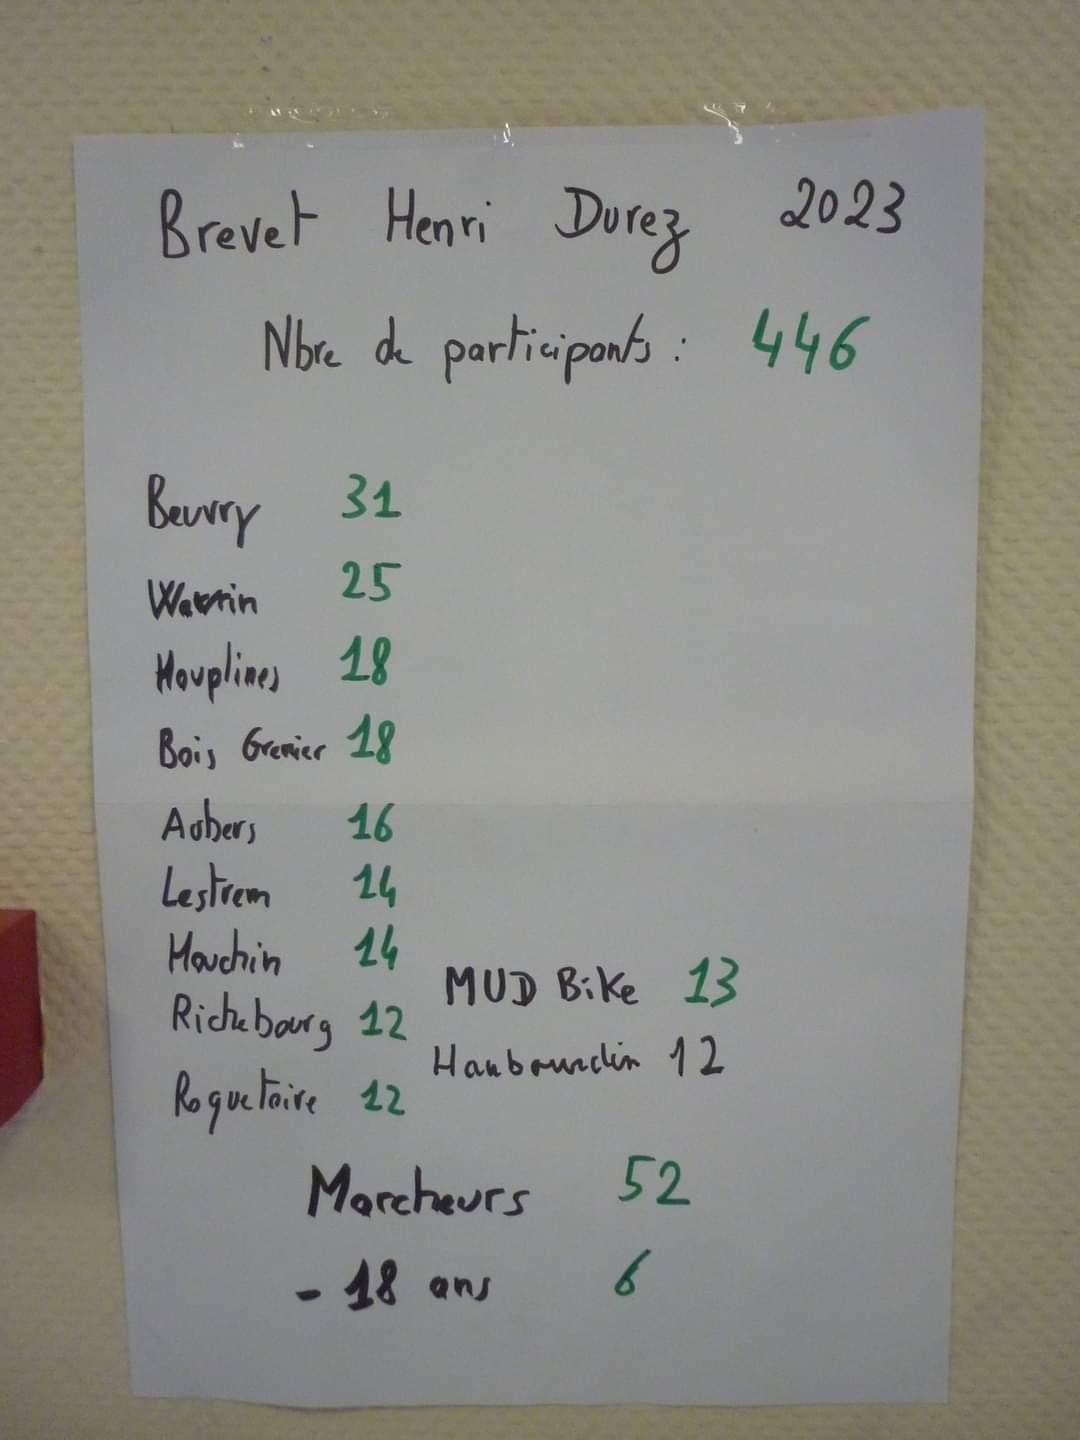 Brevet Henri Durez 2023
Nbre de participants : 446
Beuvry 31
Wavrin 25
Houplines 18
Bois Grenier 18
Aubers 16
Lestrem 14
Houchin 14
MUD Bike 13
Richebourg 12
Haubourdin 12
Roquetoire 12
Marcheurs 52
- 18 ans 6